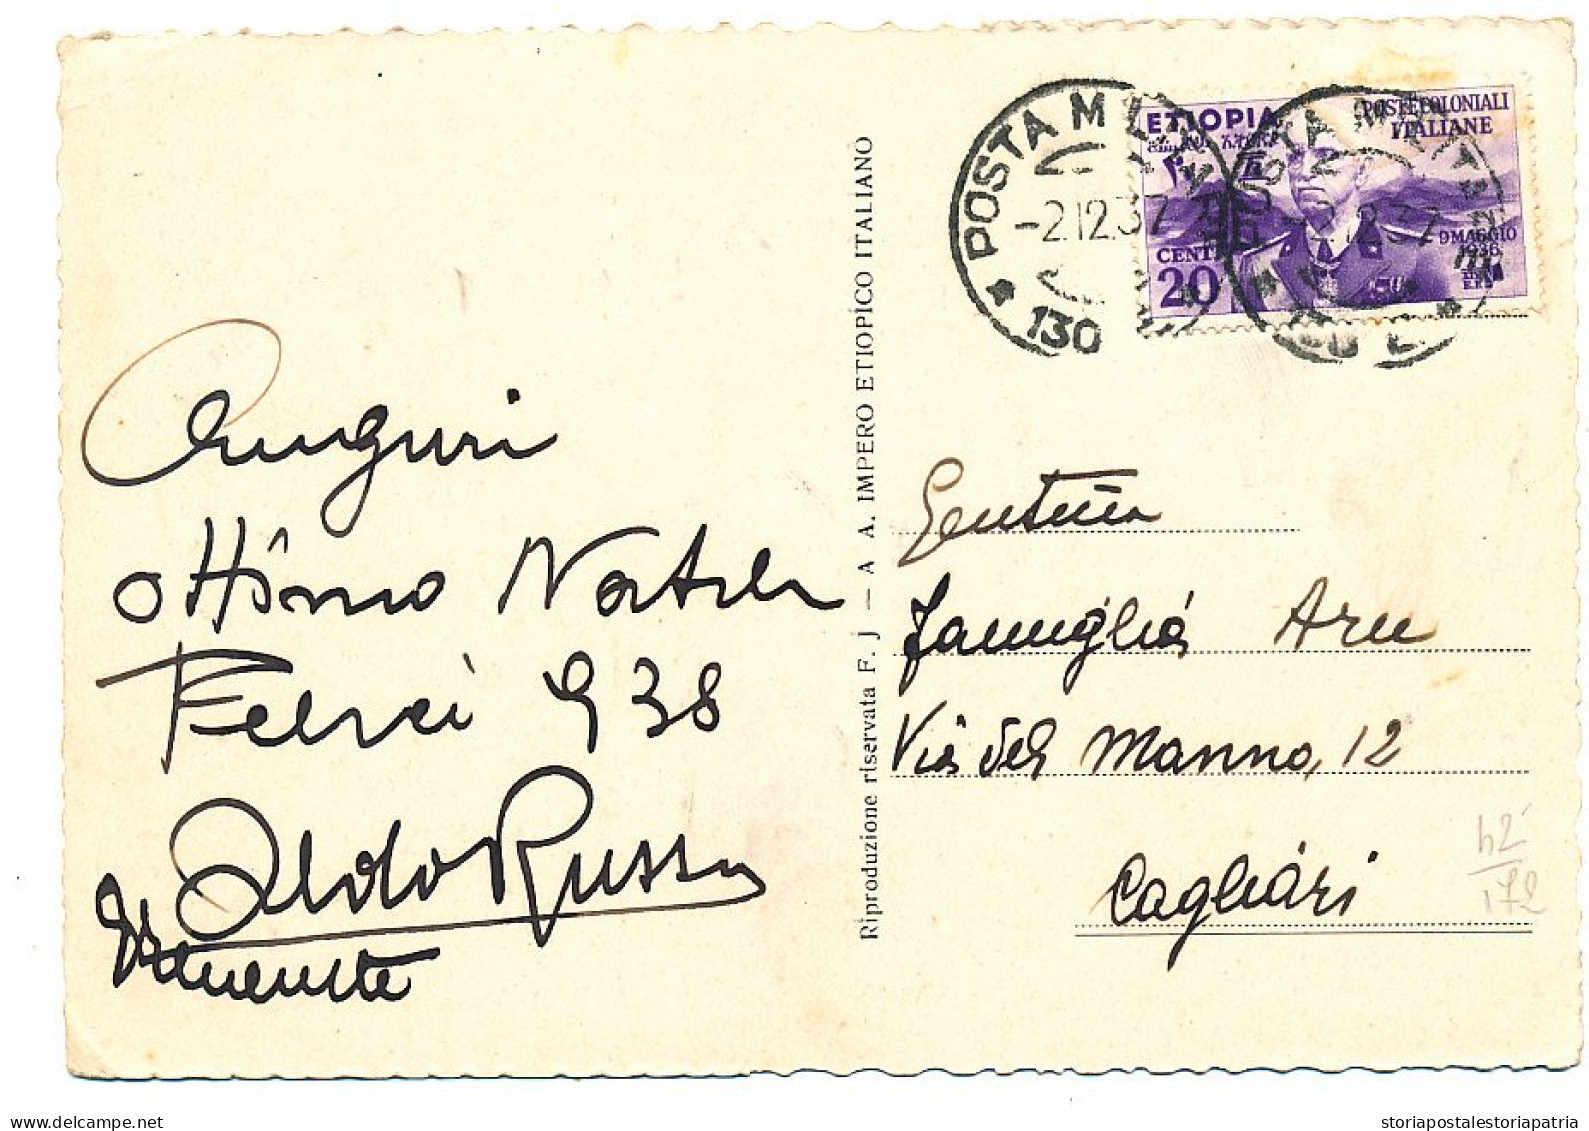 Auguri
ottimo Natale
Felice 938
Aldo Russo
Riproduzione riservata F. J — A A. IMPERO ETIOPICO ITALIANO
POSTA MILITARE
-2.12.37
130
ETIOPIA
POSTE COLONIALI
ITALIANE
9 MAGGIO
1936
CENT.
20
POSTA MILITARE
-2.12.37
Famiglia Aru
Via del Manno, 12
Cagliari
42
172
www.delcampe.net
storiapostalestoriapatria